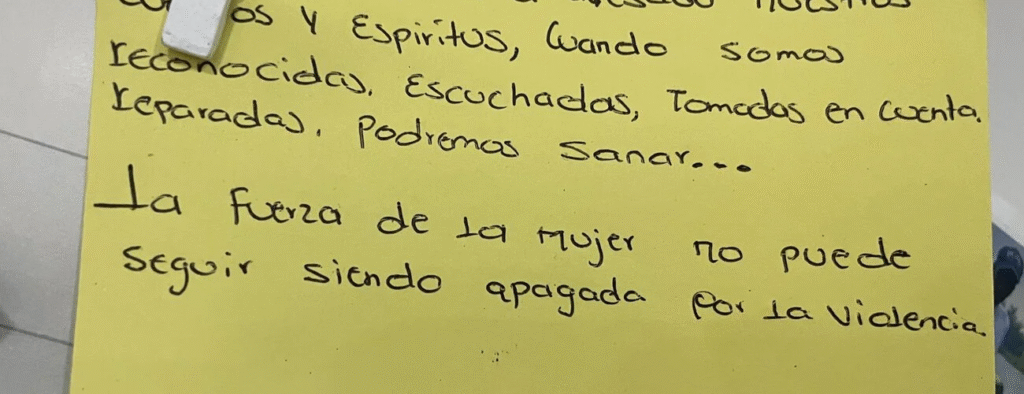 os y Espiritus, Cuando somos
reconocidas, Escuchadas, Tomadas en cuenta.
reparadas, Podremos sanar...
La Fuerza de la mujer no puede
seguir siendo apagada por la violencia.